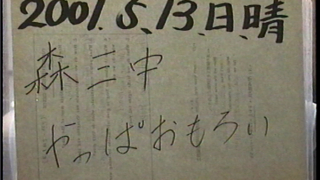 2001.5.13.日.晴
森三中
やっぱおもろい